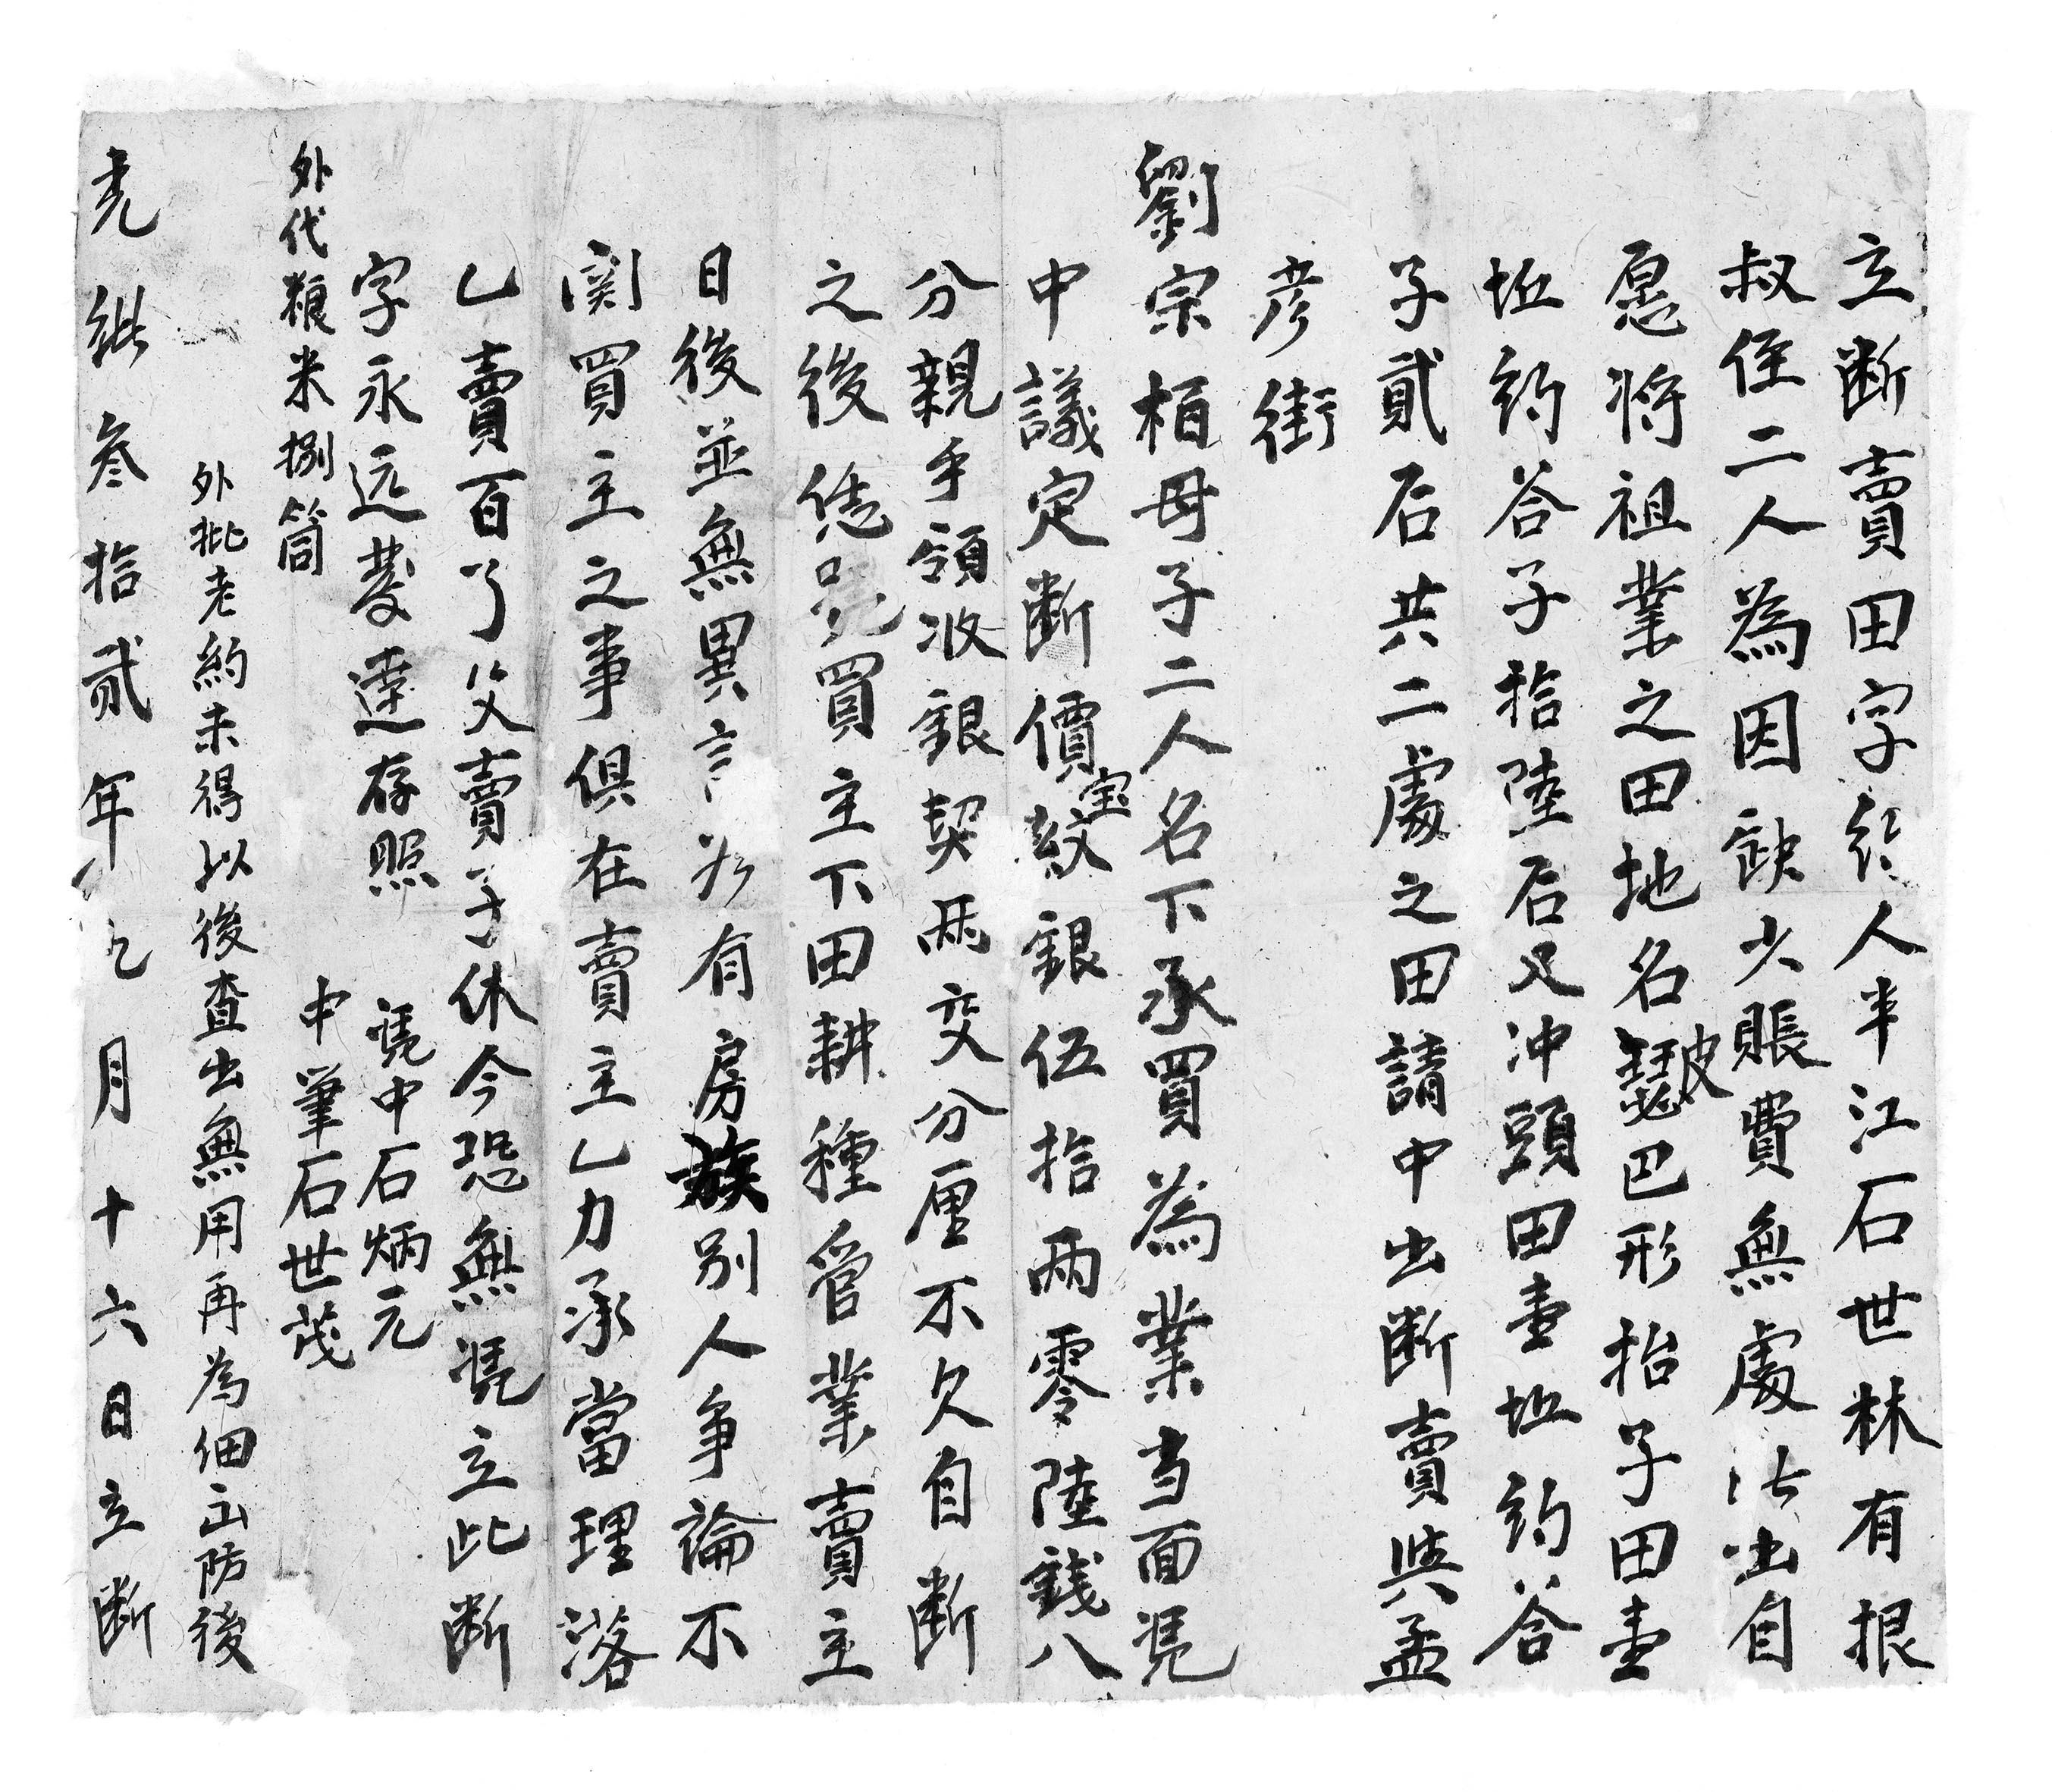 立断賣田字約人半江石世林有根
叔侄二人為因缺少賬費無處法出自
愿將祖業之田地名琵琶形抬子田壹
坵約谷子拾陸石又冲頭田壹坵約谷
子貳石共二處之田請中出断賣與孟
彦街
劉宗栢母子二人名下承買為業当面凭
中議定断價宝紋銀伍拾兩零陸錢八
分親手領收銀契兩交分厘不欠自断
之後恁凭買主下田耕種管業賣主
日後並無異言 有房族别人争論不
関買主之事俱在賣主乙力承當理落
乙賣百了父賣子休今恐無凭立此断
字永远發達存照
凭中石炳元
外代粮米捌筒
中筆石世茂
外批老約未得以後查出無用再為佃 防後
光緒叁拾貳年九月十六日立断